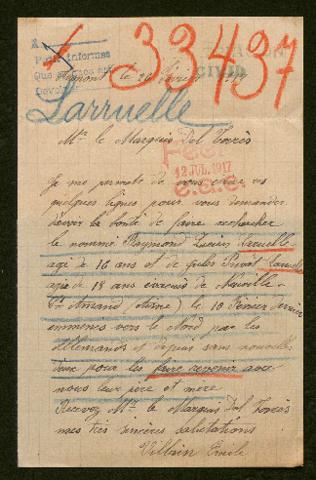 33437
Para informes
Que
Devol
CIVIL
le 26 Février
Larruelle
Mr le Marquis Del Torrès
Fecha
12 JUL. 1917
Je me permets de vous écrire ces
quelques lignes pour vous demander
d'avoir la bonté de faire rechercher
le nommé Raymond Lucien Laruelle
agé de 16 ans et de
agé de 18 ans évacués de Neuville
St Amand (Aisne) le 10 Février dernier
emmenés vers le Nord par les
Allemands et depuis sans nouvelles
pour les faire revenir avec
nous leur père et mère
Recevez Mr le Marquis Del Torrès
mes très sincères salutations
Villain Emile